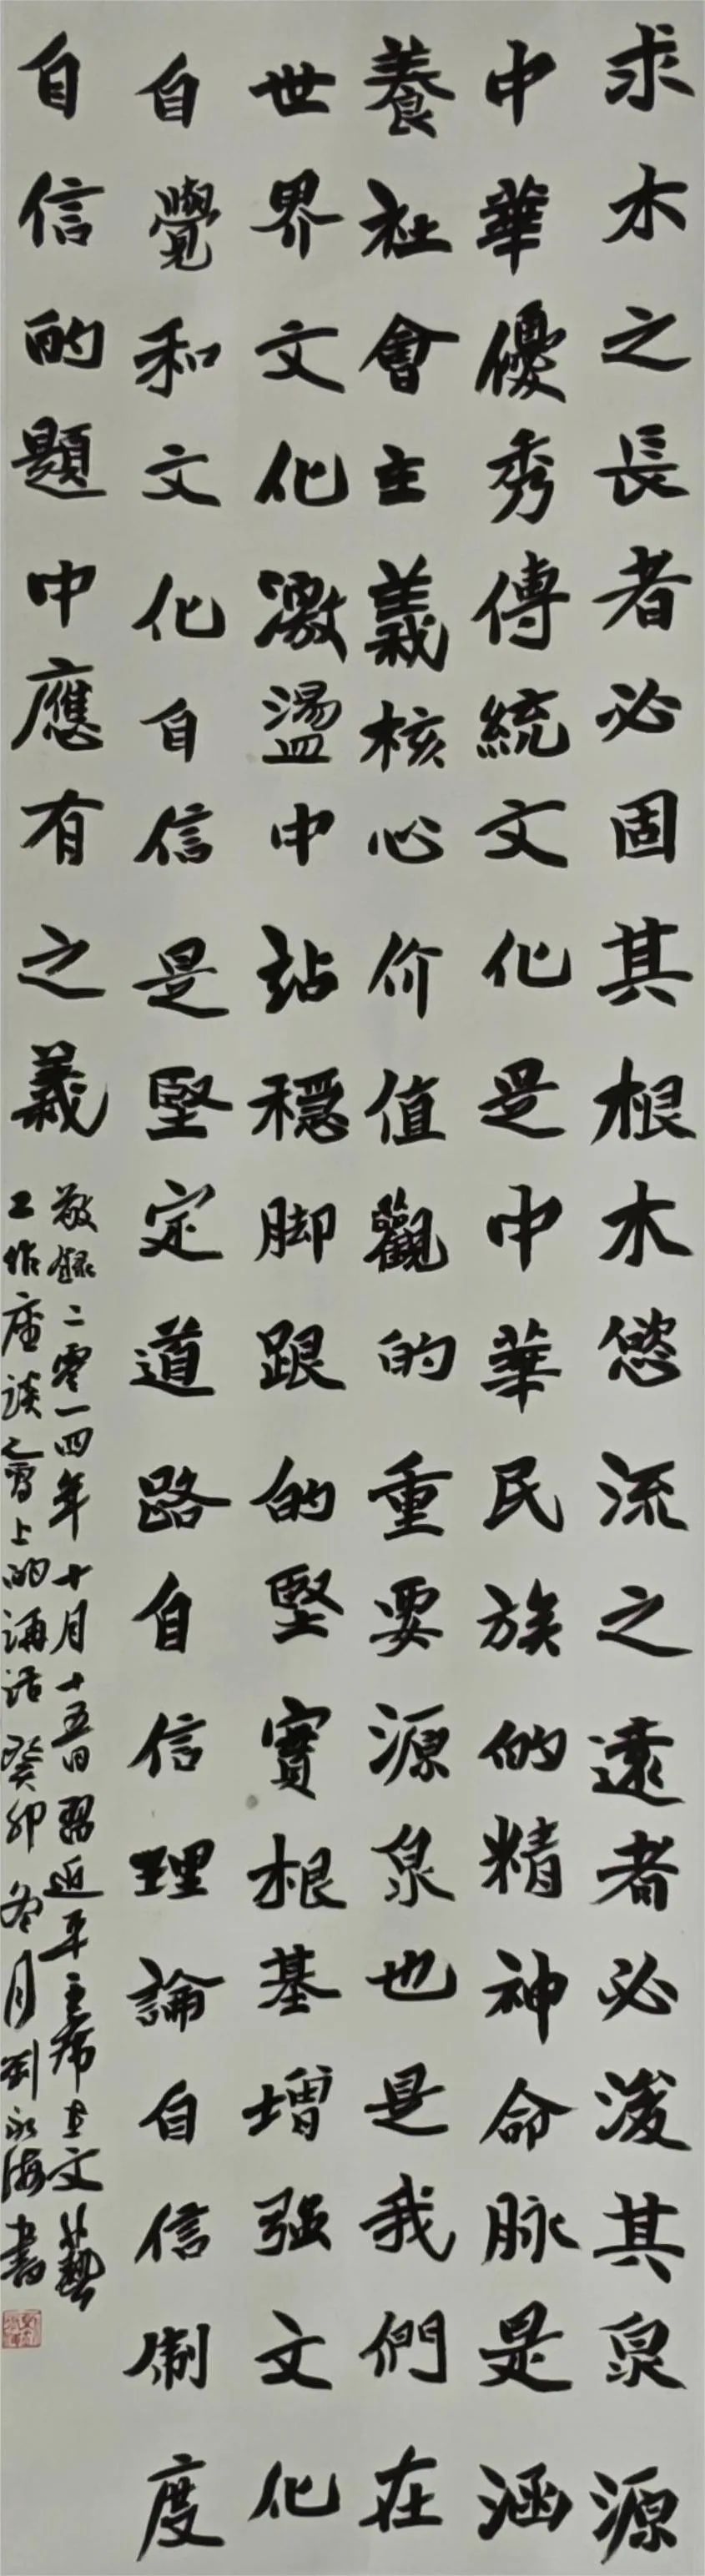 求木之長者必固其根木慾流之遠者必浚其泉源
中華優秀傳統文化是中華民族的精神命脉是涵
養社會主義核心价值觀的重要源泉也是我們在
世界文化激盪中站穩脚跟的堅實根基增强文化
自覺和文化自信是堅定道路自信理論自信制度
自信的題中應有之義
敬録二零一四年十月十五日習近平主席在文藝
工作座談會上的講話癸卯冬月劉永海書